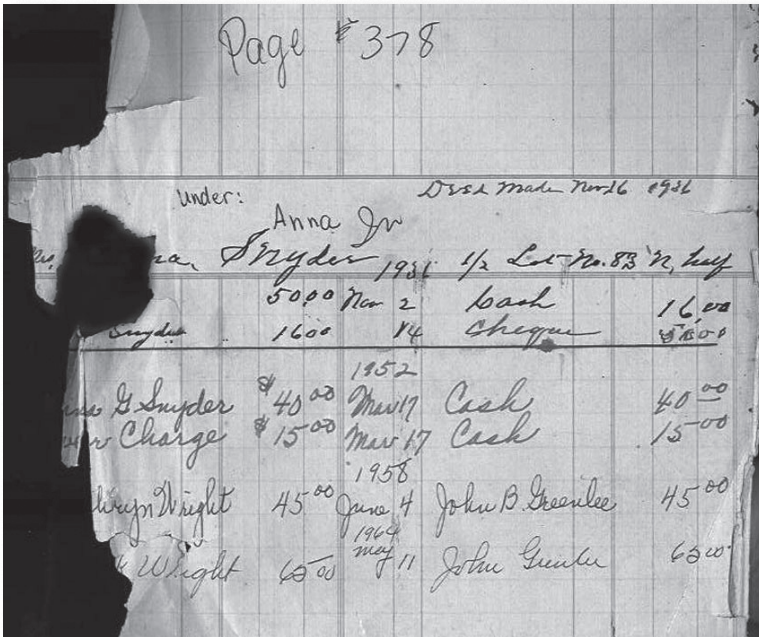 Page # 378
Under: Deed Made Nov 26 1936
Anna
Snyder 1931 1/2 Lot No. 83 N, half
50 00 Nov 2 Cash 16,00
Snyder 16 00 14 Cheque
1952
G Snyder $40 00 Mar 17 Cash 40 00
Charge $15 00 Mar 17 Cash 15 00
1958
Wright 45 00 June 4 John B Greenlee 45 00
1964
Wright 65 00 May 11 John 65 00